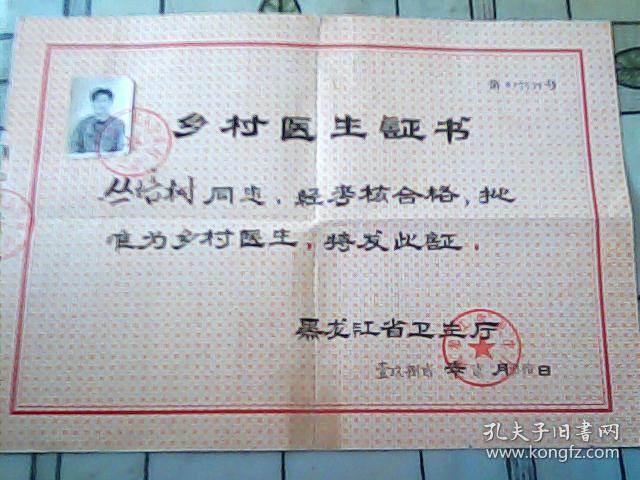 乡村医生证书
丛培树同志，经考核合格，批
准为乡村医生，特发此证。
黑龙江省卫生厅
年 月 日
孔夫子旧书网
www.kongfz.com